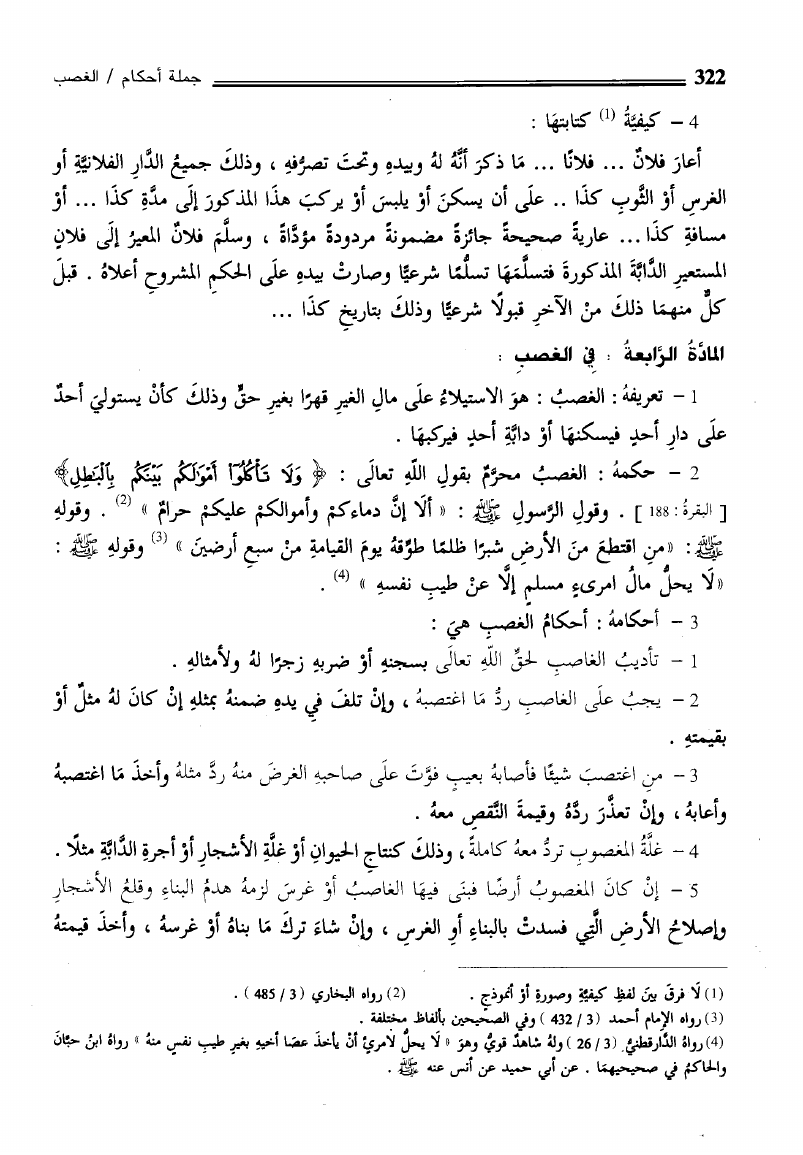 322 جملة أحكام / الغصب
4 – كيفيَّةُ (1) كتابتهَا :
أعارَ فلانٌ ... فلانًا ... مَا ذكرَ أنَّهُ لهُ وبيدهِ وتحتَ تصرُّفهِ ، وذلكَ جميعُ الدَّارِ الفلانيَّةِ أو
الغرسِ أوْ الثَّوبِ كذَا .. علَى أن يسكنَ أوْ يلبسَ أوْ يركبَ هذَا المذكورَ إلَى مدَّةِ كذَا ... أوْ
مسافةِ كذَا ... عاريةً صحيحةً جائزةً مضمونةً مردودةً مؤدَّاةً ، وسلَّمَ فلانٌ المعيرُ إلَى فلانٍ
المستعيرِ الدَّابَّةَ المذكورةَ فتسلَّمَهَا تسلُّمًا شرعيًّا وصارتْ بيدهِ علَى الحكمِ المشروحِ أعلاهُ . قبلَ
كلٌّ منهمَا ذلكَ منْ الآخرِ قبولًا شرعيًّا وذلكَ بتاريخِ كذَا ...
المادَّةُ الرَّابعةُ : فِي الغصبِ :
1 – تعريفهُ : الغصبُ : هوَ الاستيلاءُ علَى مالِ الغيرِ قهرًا بغيرِ حقٍّ وذلكَ كأنْ يستوليَ أحدٌ
علَى دارِ أحدٍ فيسكنهَا أوْ دابَّةِ أحدٍ فيركبهَا .
2 – حكمهُ : الغصبُ محرَّمٌ بقولِ اللَّهِ تعالَى : ﴿ وَلَا تَأْكُلُوٓاْ أَمْوَٰلَكُم بَيْنَكُم بِٱلْبَٰطِلِ﴾
[ البقرةُ : 188 ] . وقولِ الرَّسولِ ﷺ : « ألَا إنَّ دماءكمْ وأموالكمْ عليكمْ حرامٌ » (2) . وقولهِ
ﷺ : «من اقتطعَ منَ الأرضِ شبرًا ظلمًا طوِّقهُ يومَ القيامةِ منْ سبعِ أرضينَ » (3) وقولهِ ﷺ :
«لَا يحلُّ مالُ امرىءٍ مسلمٍ إلَّا عنْ طيبِ نفسهِ » (4) .
3 – أحكامهُ : أحكامُ الغصبِ هيَ :
1 – تأديبُ الغاصبِ لحقِّ اللَّهِ تعالَى بسجنهِ أوْ ضربهِ زجرًا لهُ ولأمثالهِ .
2 – يجبُ علَى الغاصبِ ردُّ مَا اغتصبهُ ، وإنْ تلفَ في يدهِ ضمنهُ بمثلهِ إنْ كانَ لهُ مثلٌ أوْ
بقيمتهِ .
3 – منِ اغتصبَ شيئًا فأصابهُ بعيبٍ فوَّتَ علَى صاحبهِ الغرضَ منهُ ردَّ مثلهُ وأخذَ مَا اغتصبهُ
وأعابهُ ، وإنْ تعذَّرَ ردَّهُ وقيمةَ النَّقصِ معهُ .
4 – غلَّةُ المغصوبِ تردُّ معهُ كاملةً ، وذلكَ كنتاجِ الحيوانِ أوْ غلَّةِ الأشجارِ أوْ أجرةِ الدَّابَّةِ مثلًا .
5 – إنْ كانَ المغصوبُ أرضًا فبنَى فيهَا الغاصبُ أوْ غرسَ لزمهُ هدمُ البناءِ وقلعُ الأشجارِ
وإصلاحُ الأرضِ الَّتِي فسدتْ بالبناءِ أوِ الغرسِ ، وإنْ شاءَ تركَ مَا بناهُ أوْ غرسهُ ، وأخذَ قيمتهُ
(1) لَا فرقَ بينَ لفظِ كيفيَّةٍ وصورةٍ أوْ أنموذجٍ . (2) رواه البخاري (3 / 485 ) .
(3) رواه الإمام أحمد (3 / 432 ) وفي الصحيحين بألفاظ مختلفة .
(4) رواهُ الدَّارقطنيُّ (3 / 26 ) ولهُ شاهدٌ قويٌّ وهوَ « لَا يحلُّ لامرئٍ أنْ يأخذَ عصَا أخيهِ بغيرِ طيبِ نفسٍ منهُ » رواهُ ابنُ حبَّانَ
والحاكمُ في صحيحيهمَا . عن أبي حميد عن أنس عنه ﷺ .